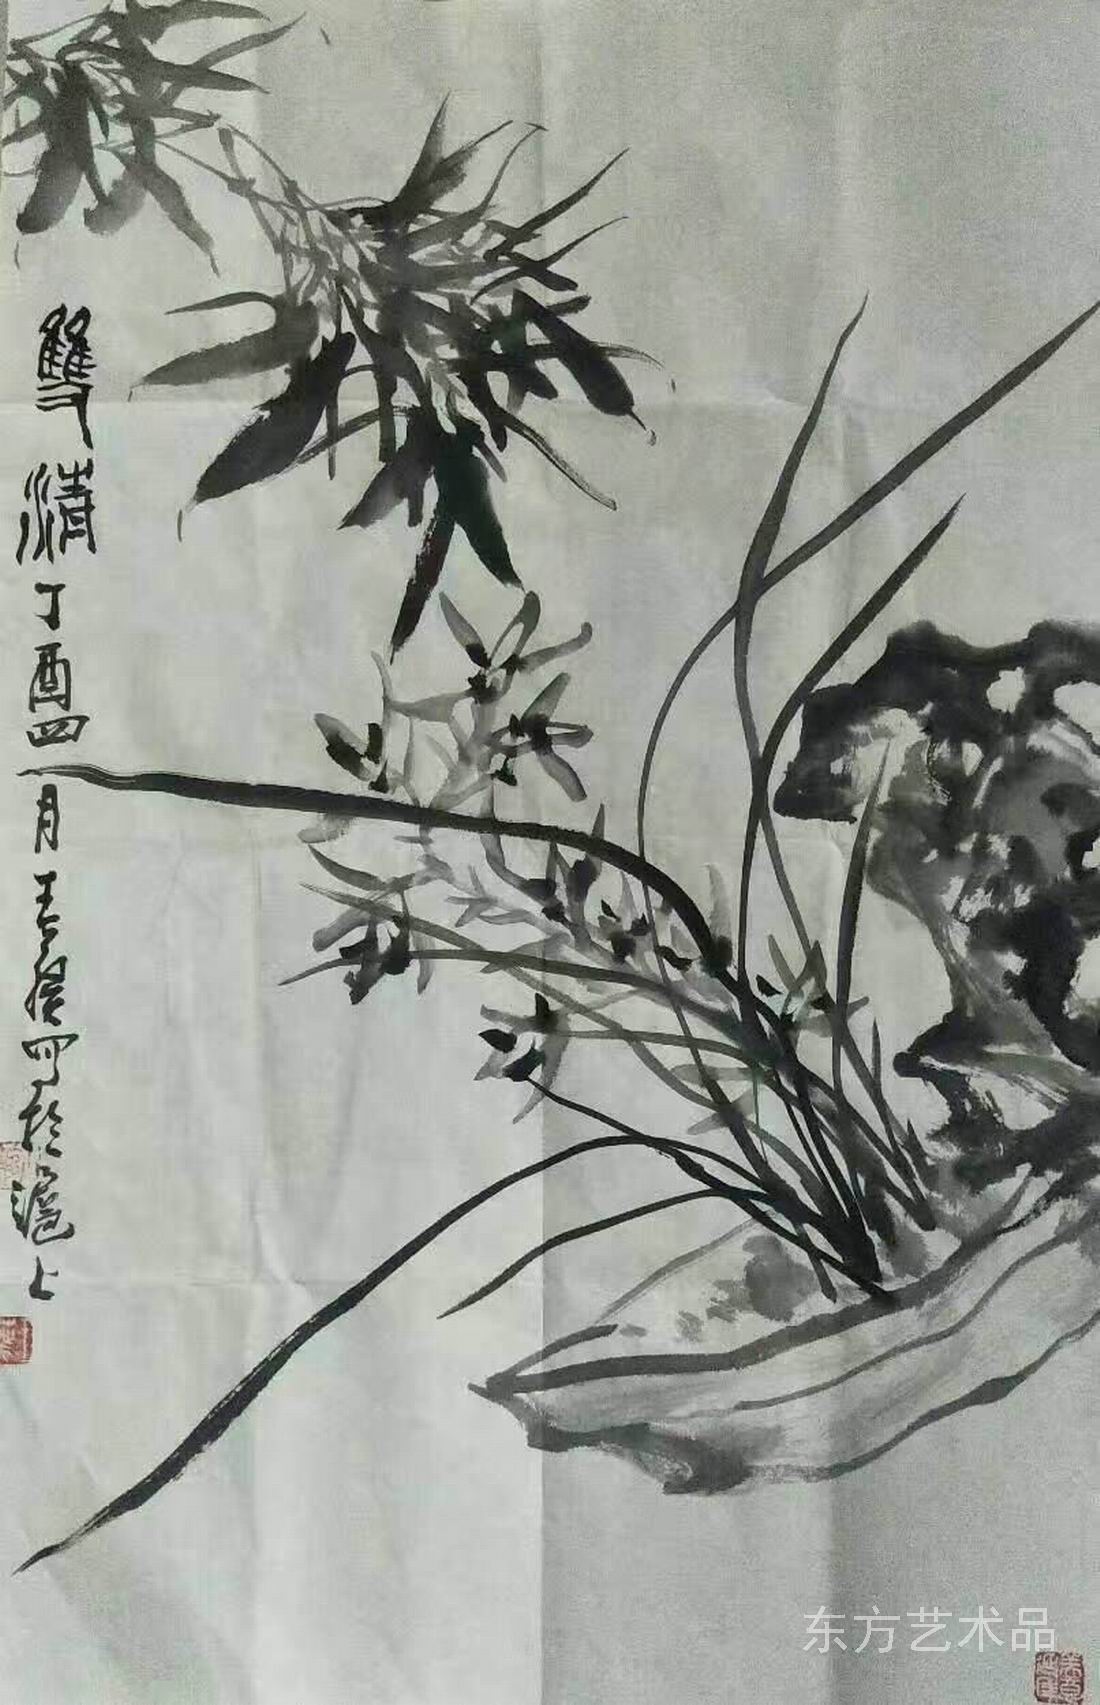 雙清
丁酉四月吉祺写於滬上
东方艺术品